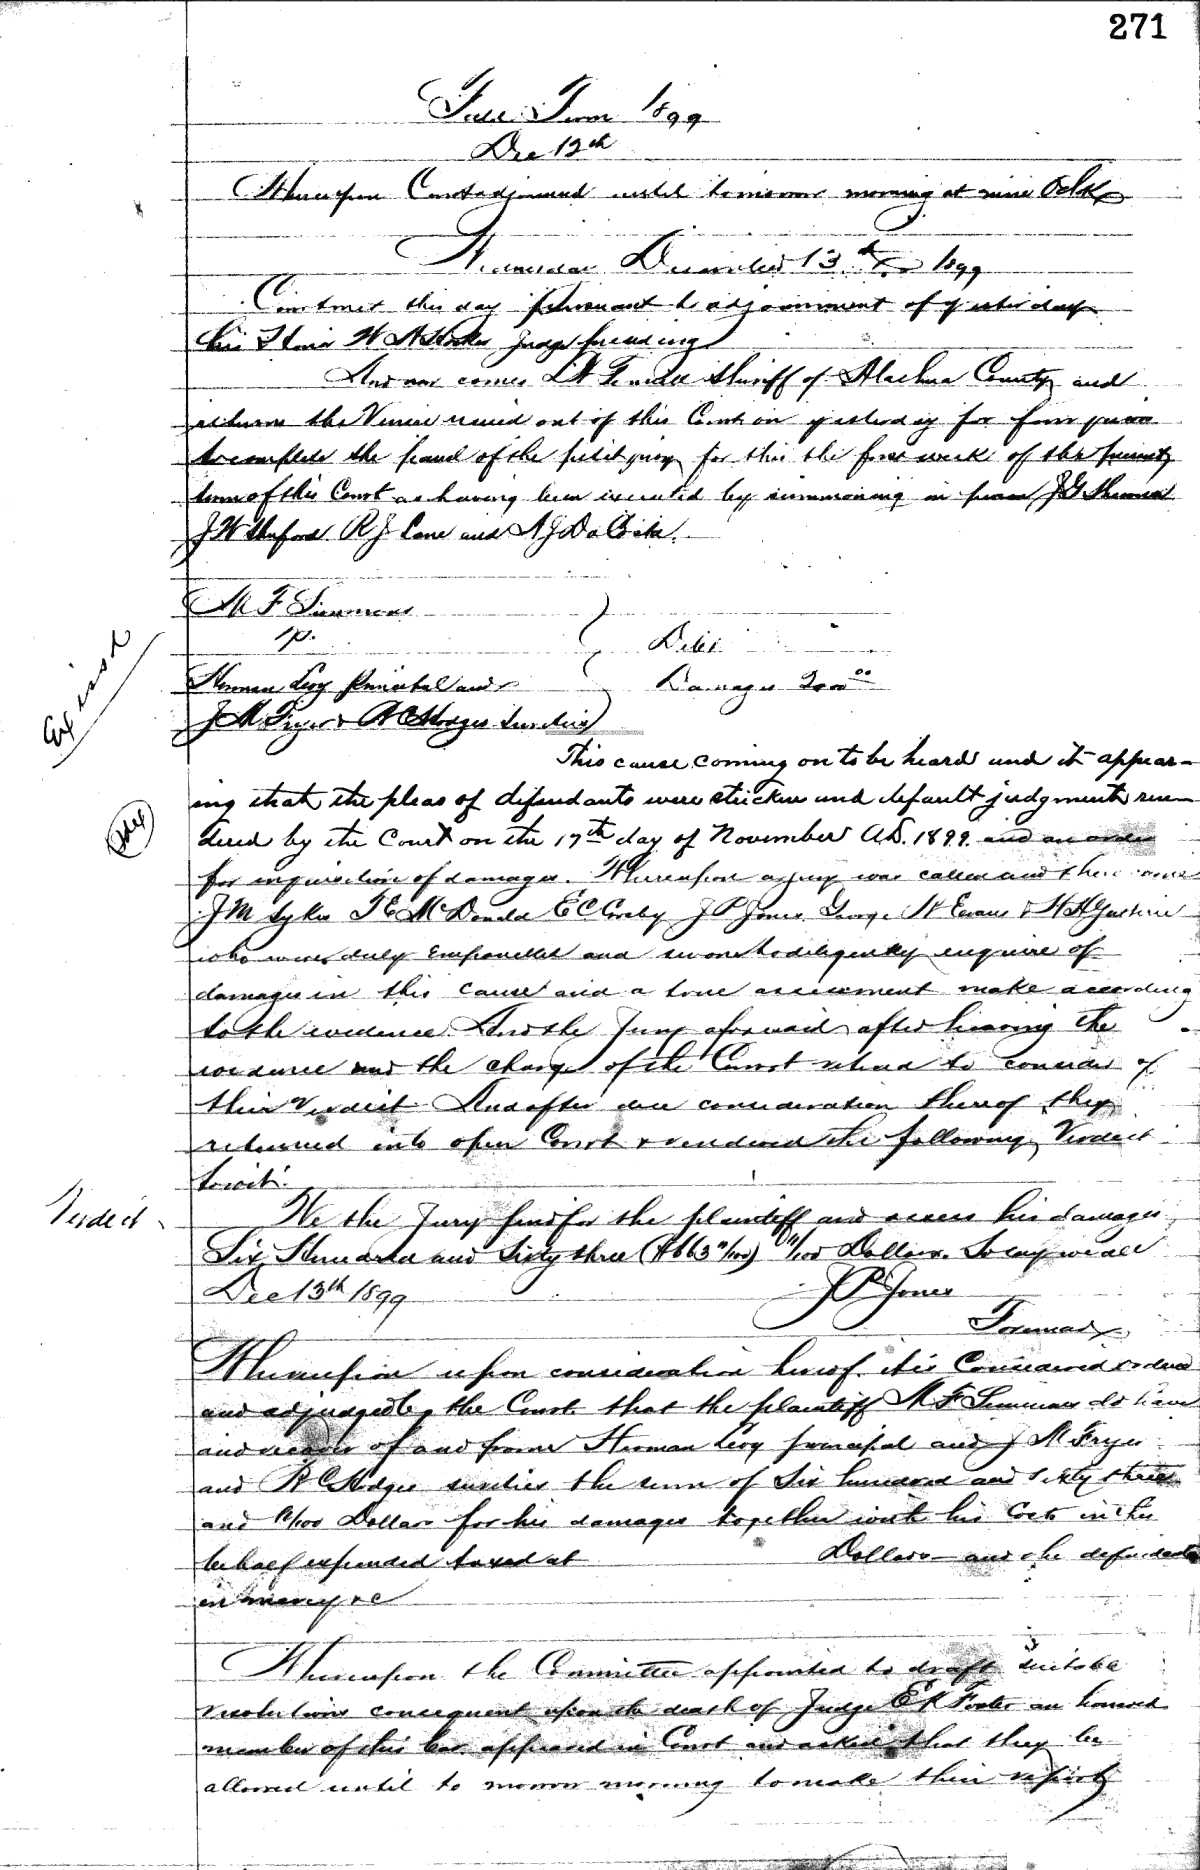 271
Fall Term 1899
Dec 12th
Whereupon Court adjourned until tomorrow morning at nine Oclk
Wednesday December 13th 1899
Court met this day pursuant to adjournment of yesterday
his Honor W A Hocker Judge presiding
And now comes L W Fennell Sheriff of Alachua County and
returns the Venire issued out of this Court on yesterday for four jurors
to complete the panel of the petit jury for this the first week of the present
term of this Court as having been executed by summoning in person
R J Lane and A J DaCosta.
M F Simmons
vs.
Debt
Herman Levy Principal and
Damages
J M Fryer & R C Hodges Sureties
Exissd
This cause coming on to be heard and it appear-
ing that the pleas of defendants were stricken and default judgment ren-
dered by the Court on the 17th day of November A.D. 1899. and an order
for inquisition of damages. Whereupon a jury was called and then came
J M Sykes T E McDonald E C Cosby J P Jones George W Evans & H H
who were duly empanelled and sworn to diligently enquire of
damages in this cause and a true assessment make according
to the evidence And the Jury aforesaid after hearing the
evidence and the charge of the Court retired to consider of
their Verdict And after due consideration thereof they
returned into open Court & rendered the following Verdict
towit:
Verdict
We the Jury find for the plaintiff and assess his damages
Six Hundred and Sixty three ($663 11/100) 11/100 Dollars. So say we all
Dec 13th 1899
J P Jones
Foreman
Whereupon upon consideration hereof it is Considered ordered
and adjudged by the Court that the plaintiff M F Simmons do have
and recover of and from Herman Levy principal and J M Fryer
and R C Hodges sureties the sum of Six hundred and sixty three
and 11/100 Dollars for his damages together with his Costs in this
behalf expended taxed at Dollars and the defendants
in mercy &c
Whereupon the Committee appointed to draft suitable
resolutions consequent upon the death of Judge an honored
member of this bar appeared in Court and asked that they be
allowed until to morrow morning to make their report